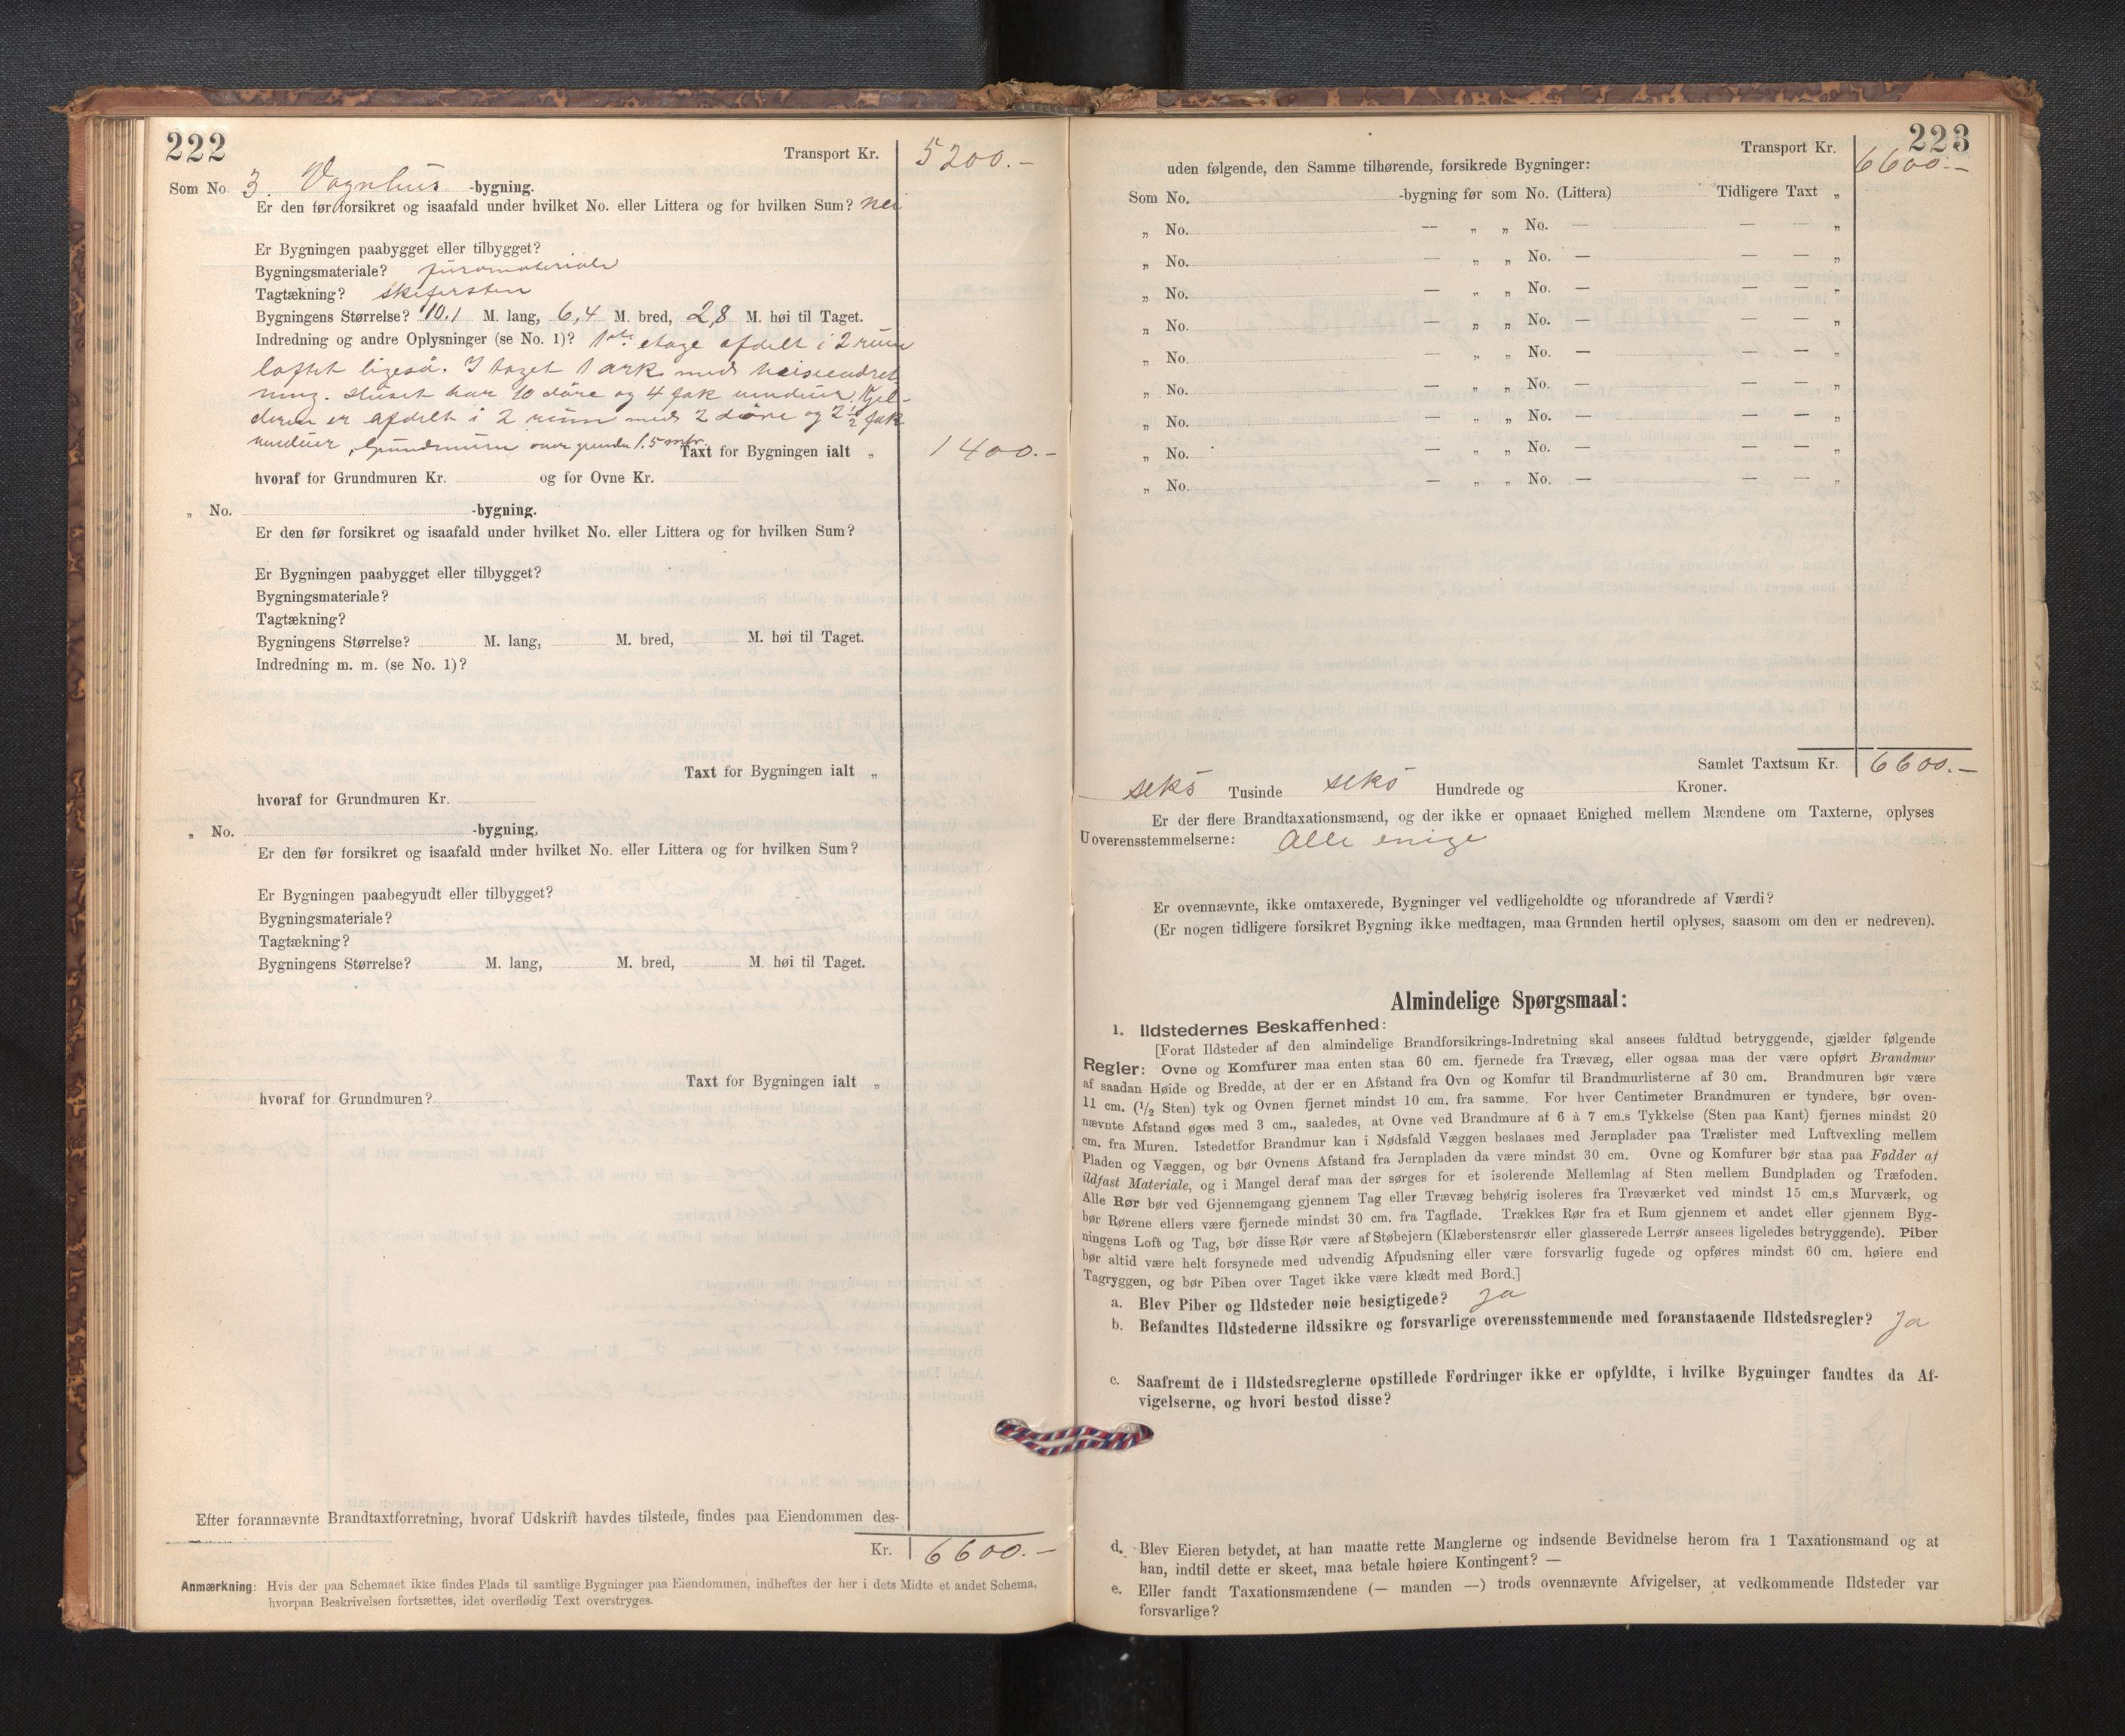 222
Transport Kr. 5200.-
Som No. 3. Vognhus -bygning.
Er den før forsikret og isaafald under hvilket No. eller Littera og for hvilken Sum? nei
Er Bygningen paabygget eller tilbygget?
Bygningsmateriale? furomateriale
Tagtækning? Skifersten
Bygningens Størrelse? 10.1 M. lang, 6,4 M. bred, 2,8 M. høi til Taget.
Indredning og andre Oplysninger (se No. 1)? 1ste etage afdelt i 2 rum
loftet ligeså. I taget 1 ark med heiseindret-
ning. Huset har 10 döre og 4 fak vinduer. Kjel-
deren er afdelt i 2 rum med 2 döre og 2 1/2 fak
vinduer, Grundmuren over grunden 1.5 mtr.
Taxt for Bygningen ialt „ 1400.-
hvoraf for Grundmuren Kr. og for Ovne Kr.
„ No. -bygning.
Er den før forsikret og isaafald under hvilket No. eller Littera og for hvilken Sum?
Er Bygningen paabygget eller tilbygget?
Bygningsmateriale?
Tagtækning?
Bygningens Størrelse? M. lang, M. bred, M. høi til Taget.
Indredning m. m. (se No. 1)?
Taxt for Bygningen ialt „
hvoraf for Grundmuren Kr.
„ No. -bygning,
Er den før forsikret og isaafald under hvilket No. eller Littera og for hvilken Sum?
Er Bygningen paabegyudt eller tilbygget?
Bygningsmateriale?
Tagtækning?
Bygningens Størrelse? M. lang, M. bred, M. høi til Taget.
Taxt for Bygningen ialt „
hvoraf for Grundmuren?
Efter forannævnte Brandtaxtforretning, hvoraf Udskrift havdes tilstede, findes paa Eiendommen des-
Kr. 6600.-
Anmærkning: Hvis der paa Schemaet ikke findes Plads til samtlige Bygninger paa Eiendommen, indheftes der her i dets Midte et andet Schema,
hvorpaa Beskrivelsen fortsættes, idet overflødig Text overstryges.
223
Transport Kr. 6600.-
uden følgende, den Samme tilhørende, forsikrede Bygninger:
Som No. -bygning før som No. (Littera) Tidligere Taxt „
„ No. — „ „ No. — — — „
„ No. — „ „ No. — — — „
„ No. — „ „ No. — — — „
„ No. — „ „ No. — — — „
„ No. — „ „ No. — — — „
„ No. — „ „ No. — — — „
„ No. — „ „ No. — — — „
„ No. — „ „ No. — — — „
„ No. — „ „ No. — — — „
Samlet Taxtsum Kr. 6600.-
seks Tusinde seks Hundrede og Kroner.
Er der flere Brandtaxationsmænd, og der ikke er opnaaet Enighed mellem Mændene om Taxterne, oplyses
Uoverensstemmelserne: Alle enige
Er ovennævnte, ikke omtaxerede, Bygninger vel vedligeholdte og uforandrede af Værdi?
(Er nogen tidligere forsikret Bygning ikke medtagen, maa Grunden hertil oplyses, saasom om den er nedreven).
Almindelige Spørgsmaal:
1. Ildstedernes Beskaffenhed:
[Forat Ildsteder af den almindelige Brandforsikrings-Indretning skal ansees fuldtud betryggende, gjælder følgende
Regler: Ovne og Komfurer maa enten staa 60 cm. fjernede fra Trævæg, eller ogsaa maa der være opført Brandmur
af saadan Høide og Bredde, at der er en Afstand fra Ovn og Komfur til Brandmurlisterne af 30 cm. Brandmuren bør være
11 cm. (1/2 Sten) tyk og Ovnen fjernet mindst 10 cm. fra samme. For hver Centimeter Brandmuren er tyndere, bør oven-
nævnte Afstand øges med 3 cm., saaledes, at Ovne ved Brandmure af 6 à 7 cm.s Tykkelse (Sten paa Kant) fjernes mindst 20
cm. fra Muren. Istedetfor Brandmur kan i Nødsfald Væggen beslaaes med Jernplader paa Trælister med Luftvexling mellem
Pladen og Væggen, og bør Ovnens Afstand fra Jernpladen da være mindst 30 cm. Ovne og Komfurer bør staa paa Fødder af
ildfast Materiale, og i Mangel deraf maa der sørges for et isolerende Mellemlag af Sten mellem Bundpladen og Træfoden.
Alle Rør bør ved Gjennemgang gjennem Tag eller Trævæg behørig isoleres fra Træværket ved mindst 15 cm.s Murværk, og
bør Rørene ellers være fjernede mindst 30 cm. fra Tagflade. Trækkes Rør fra et Rum gjennem et andet eller gjennem Byg-
ningens Loft og Tag, bør disse Rør være af Støbejern (Klæberstensrør eller glasserede Lerrør ansees ligeledes betryggende). Piber
bør altid være helt forsynede med udvendig Afpudsning eller være forsvarlig fugede og opføres mindst 60 cm. høiere end
Tagryggen, og bør Piben over Taget ikke være klædt med Bord.]
a. Blev Piber og Ildsteder nøie besigtigede? ja
b. Befandtes Ildstederne ildssikre og forsvarlige overensstemmende med foranstaaende Ildstedsregler? Ja
c. Saafremt de i Ildstedsreglerne opstillede Fordringer ikke er opfyldte, i hvilke Bygninger fandtes da Af-
vigelserne, og hvori bestod disse?
d. Blev Eieren betydet, at han maatte rette Manglerne og indsende Bevidnelse herom fra 1 Taxationsmand og at
han, indtil dette er skeet, maa betale høiere Kontingent? —
e. Eller fandt Taxationsmændene (— manden —) trods ovennævnte Afvigelser, at vedkommende Ildsteder var
forsvarlige?